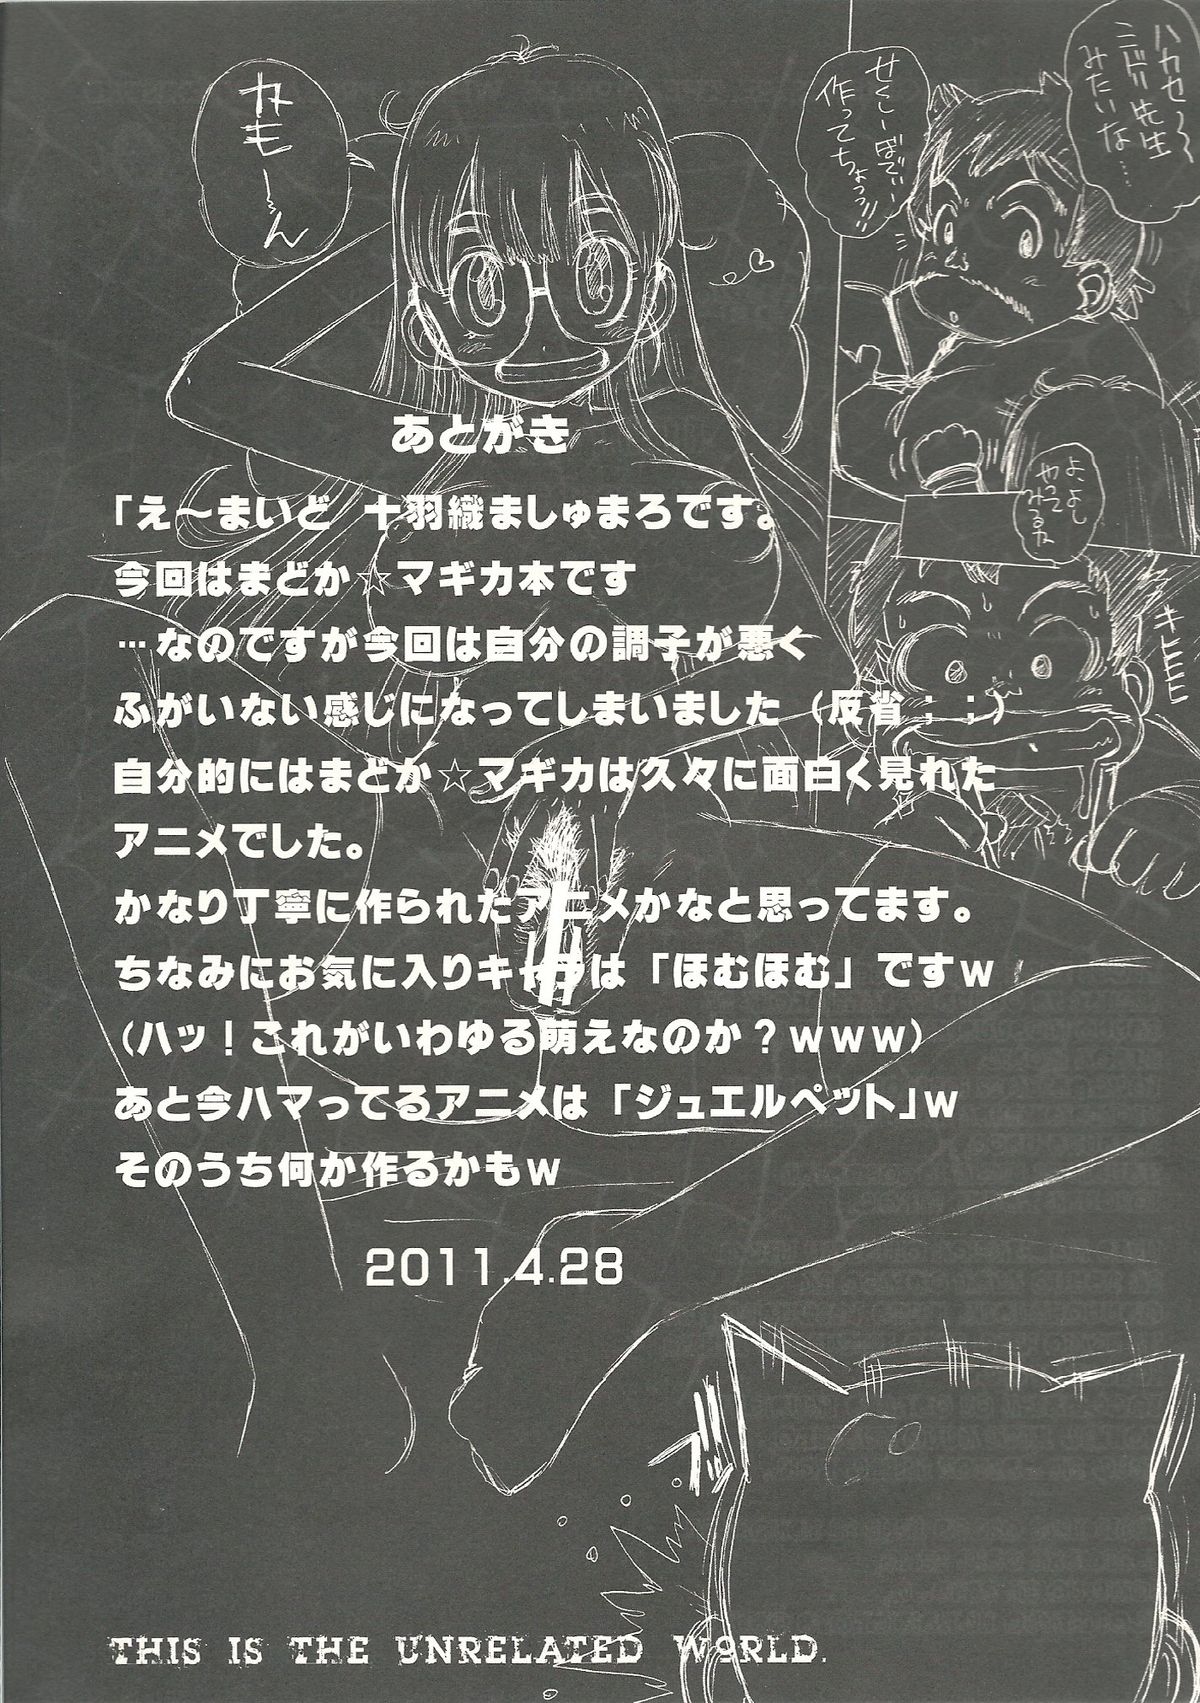 あとがき
「え～まいど 十羽織ましゅまろです。
今回はまどか☆マギカ本です
…なのですが今回は自分の調子が悪く
ふがいない感じになってしまいました（反省；；）
自分的にはまどか☆マギカは久々に面白く見れた
アニメでした。
かなり丁寧に作られたアニメかなと思ってます。
ちなみにお気に入りキャラは「ほむほむ」ですｗ
（ハッ！これがいわゆる萌えなのか？ｗｗｗ）
あと今ハマってるアニメは「ジュエルペット」ｗ
そのうち何か作るかもｗ
2011.4.28
THIS IS THE UNRELATED WORLD.